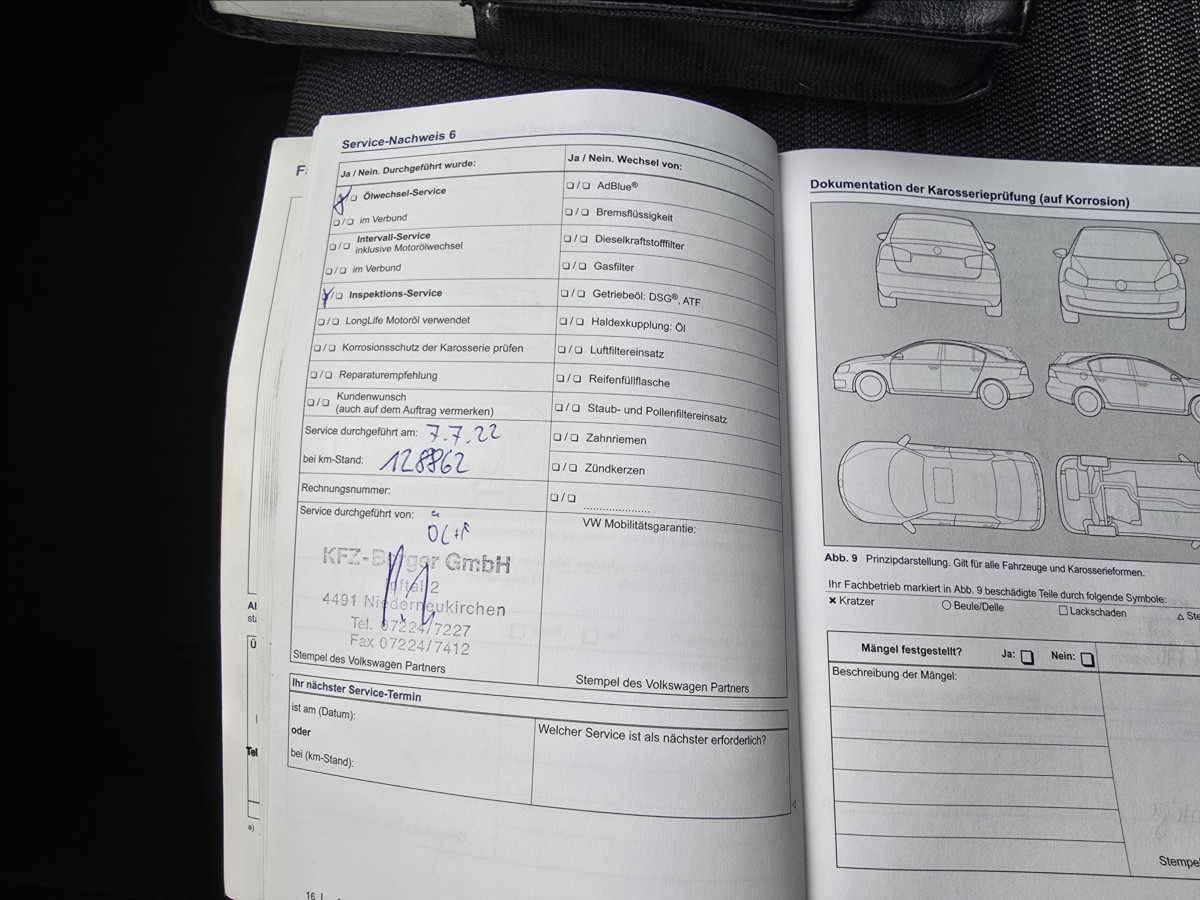 Service-Nachweis 6
Ja / Nein. Durchgeführt wurde:
❑ Ölwechsel-Service
❑ / ❑ im Verbund
❑ / ❑ Intervall-Service
inklusive Motorölwechsel
❑ / ❑ im Verbund
/ ❑ Inspektions-Service
❑ / ❑ LongLife Motoröl verwendet
❑ / ❑ Korrosionsschutz der Karosserie prüfen
❑ / ❑ Reparaturempfehlung
❑ / ❑ Kundenwunsch
(auch auf dem Auftrag vermerken)
Service durchgeführt am: 7.7.22
bei km-Stand: 128862
Rechnungsnummer:
Service durchgeführt von:
KFZ-Berger GmbH
2
4491 Niederneukirchen
Tel. 07224/7227
Fax 07224/7412
Stempel des Volkswagen Partners
Ja / Nein. Wechsel von:
❑ / ❑ AdBlue®
❑ / ❑ Bremsflüssigkeit
❑ / ❑ Dieselkraftstofffilter
❑ / ❑ Gasfilter
❑ / ❑ Getriebeöl: DSG®, ATF
❑ / ❑ Haldexkupplung: Öl
❑ / ❑ Luftfiltereinsatz
❑ / ❑ Reifenfüllflasche
❑ / ❑ Staub- und Pollenfiltereinsatz
❑ / ❑ Zahnriemen
❑ / ❑ Zündkerzen
❑ / ❑ ....................
VW Mobilitätsgarantie:
Stempel des Volkswagen Partners
Ihr nächster Service-Termin
ist am (Datum):
oder
bei (km-Stand):
Welcher Service ist als nächster erforderlich?
16
Dokumentation der Karosserieprüfung (auf Korrosion)
Abb. 9 Prinzipdarstellung. Gilt für alle Fahrzeuge und Karosserieformen.
Ihr Fachbetrieb markiert in Abb. 9 beschädigte Teile durch folgende Symbole:
✖ Kratzer ◯ Beule/Delle ☐ Lackschaden △ Ste
Mängel festgestellt? Ja: ❑ Nein: ❑
Beschreibung der Mängel:
Stempel